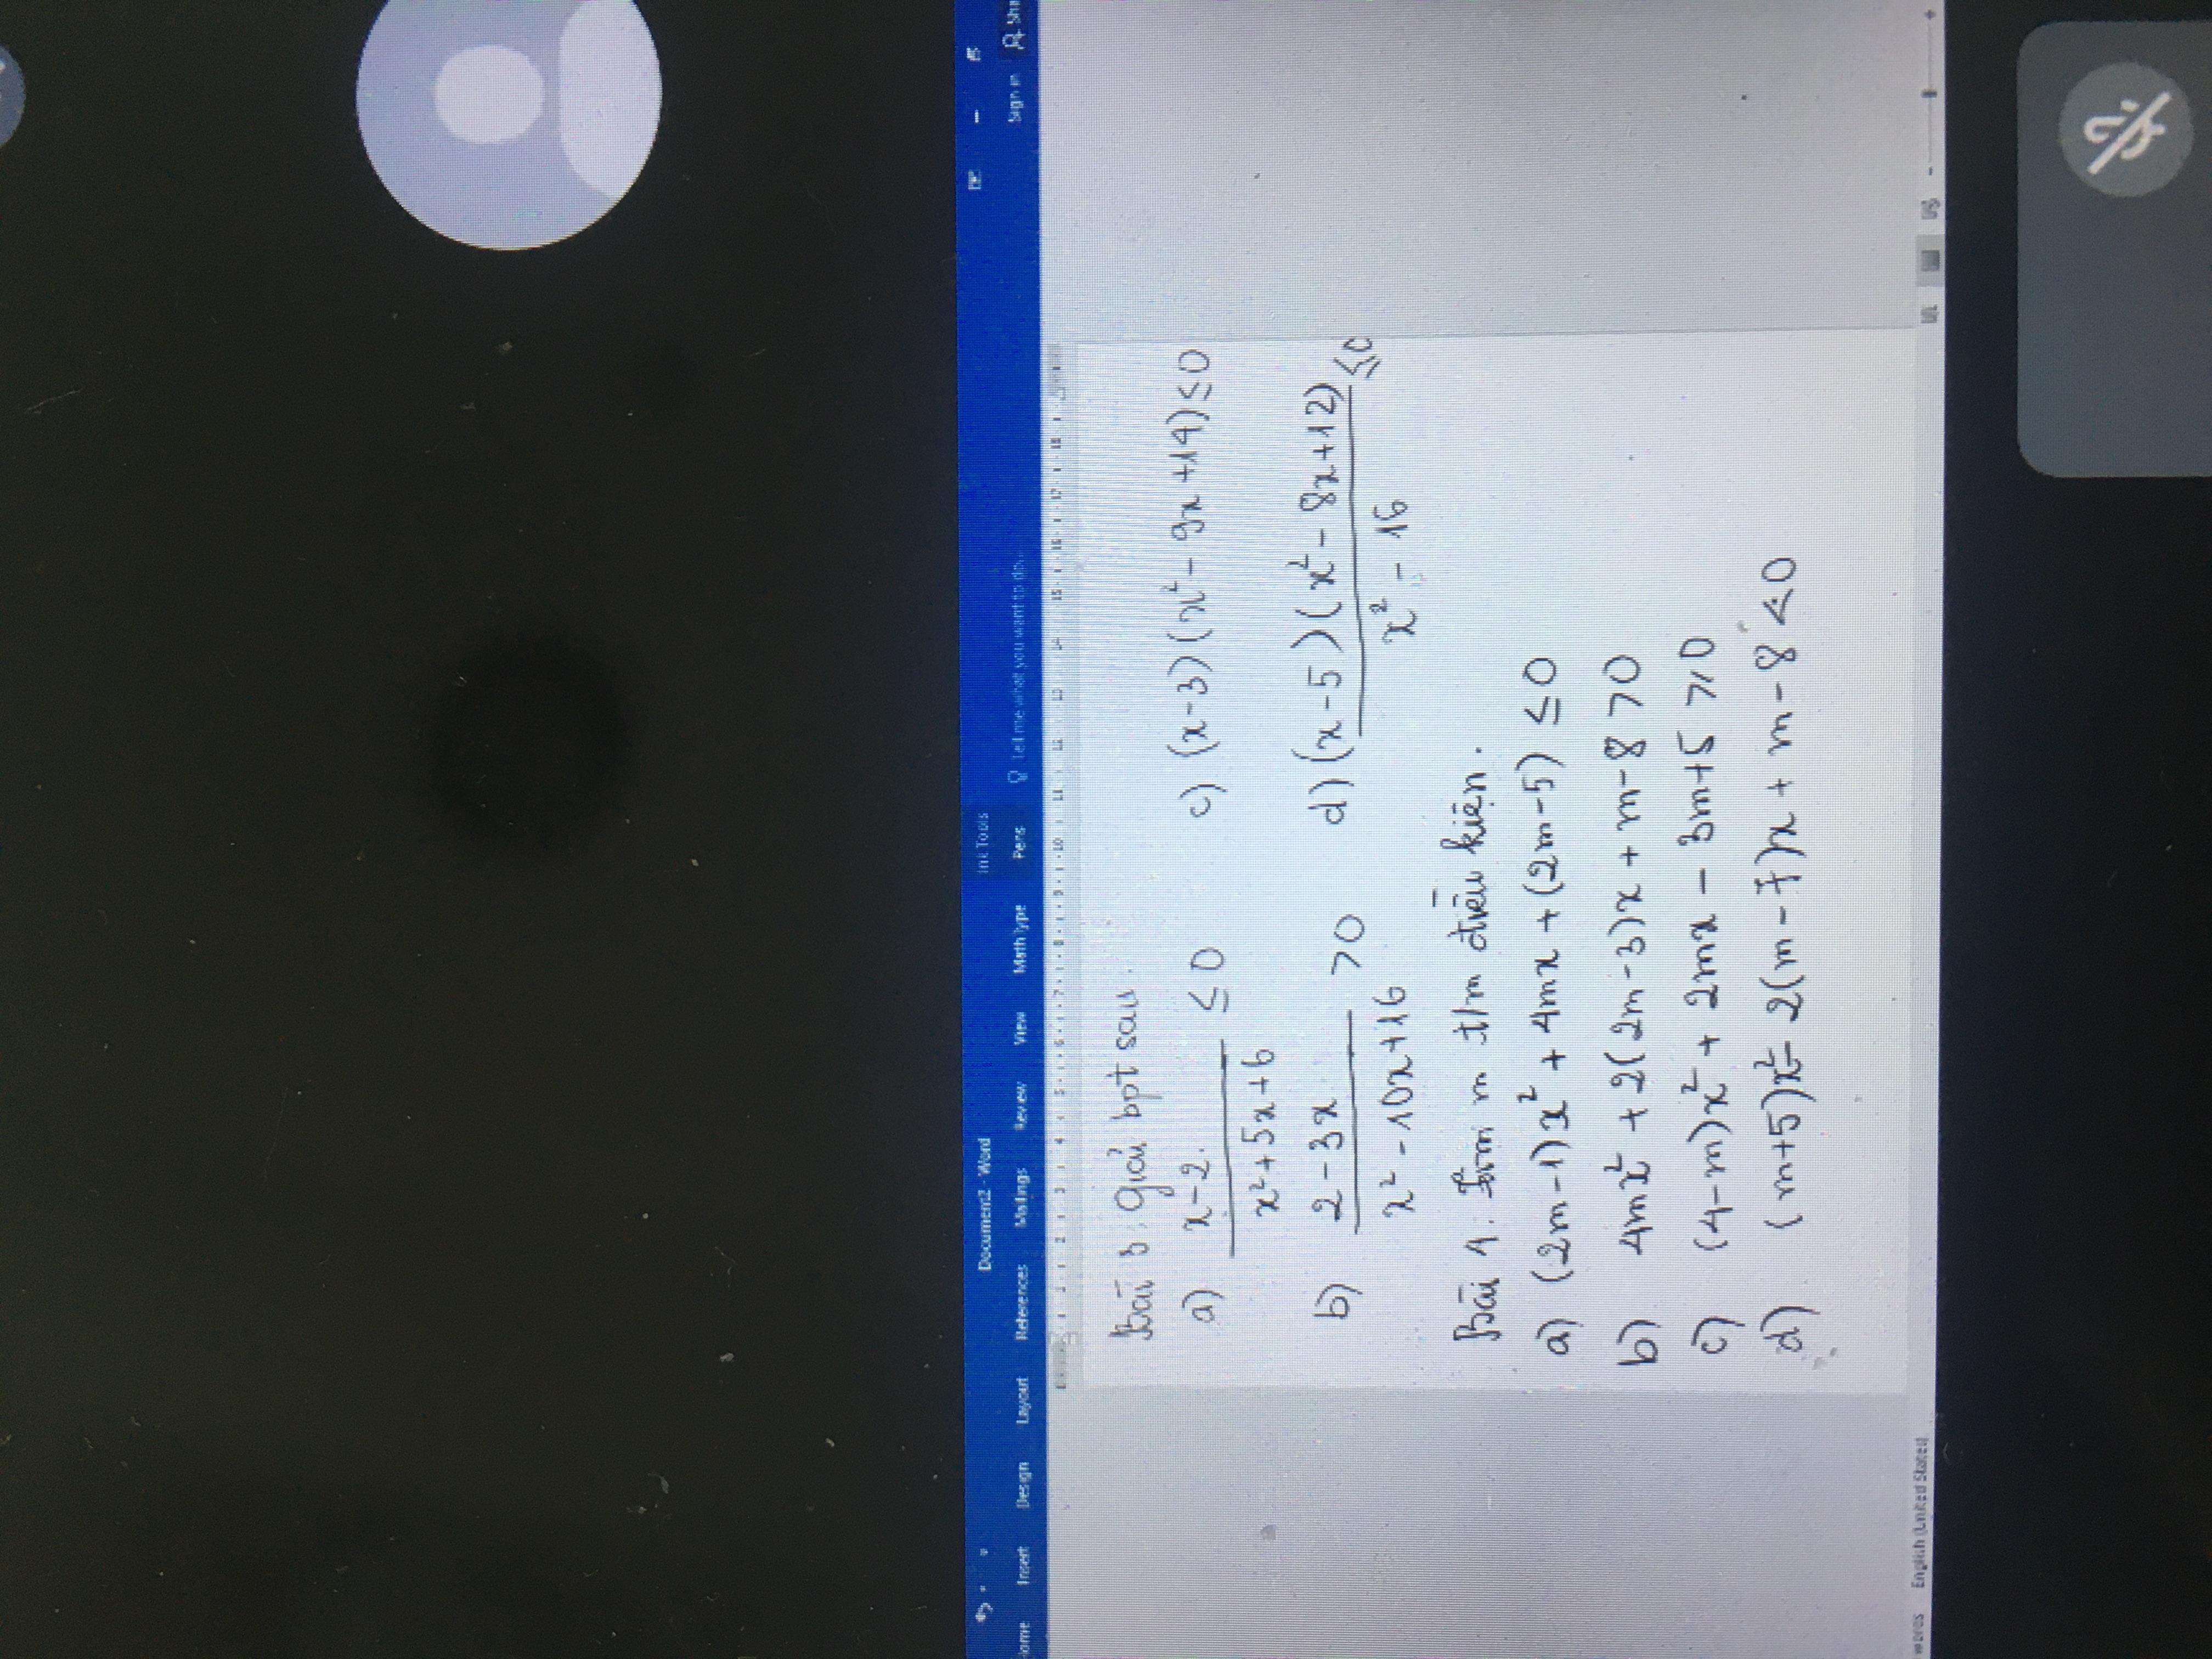 Document2 - Word
Ink Tools
Home Insert Design Layout References Mailings Review View MathType Pens Tell me what you want to do...
Sign in
Bài 3: Giải bpt sau.
a) x-2 / x²+5x+6 ≤ 0
c) (x-3)(x²-9x+14) ≤ 0
b) 2-3x / x²-10x+16 > 0
d) (x-5)(x²-8x+12) / x²-16 ≤ 0
Bài 4: Tìm m t/m điều kiện.
a) (2m-1)x² + 4mx + (2m-5) ≤ 0
b) 4mx² + 2(2m-3)x + m-8 > 0
c) (4-m)x² + 2mx - 3m+5 ⩾ 0
d) (m+5)x² - 2(m-7)x + m-8 < 0
words English (United States)